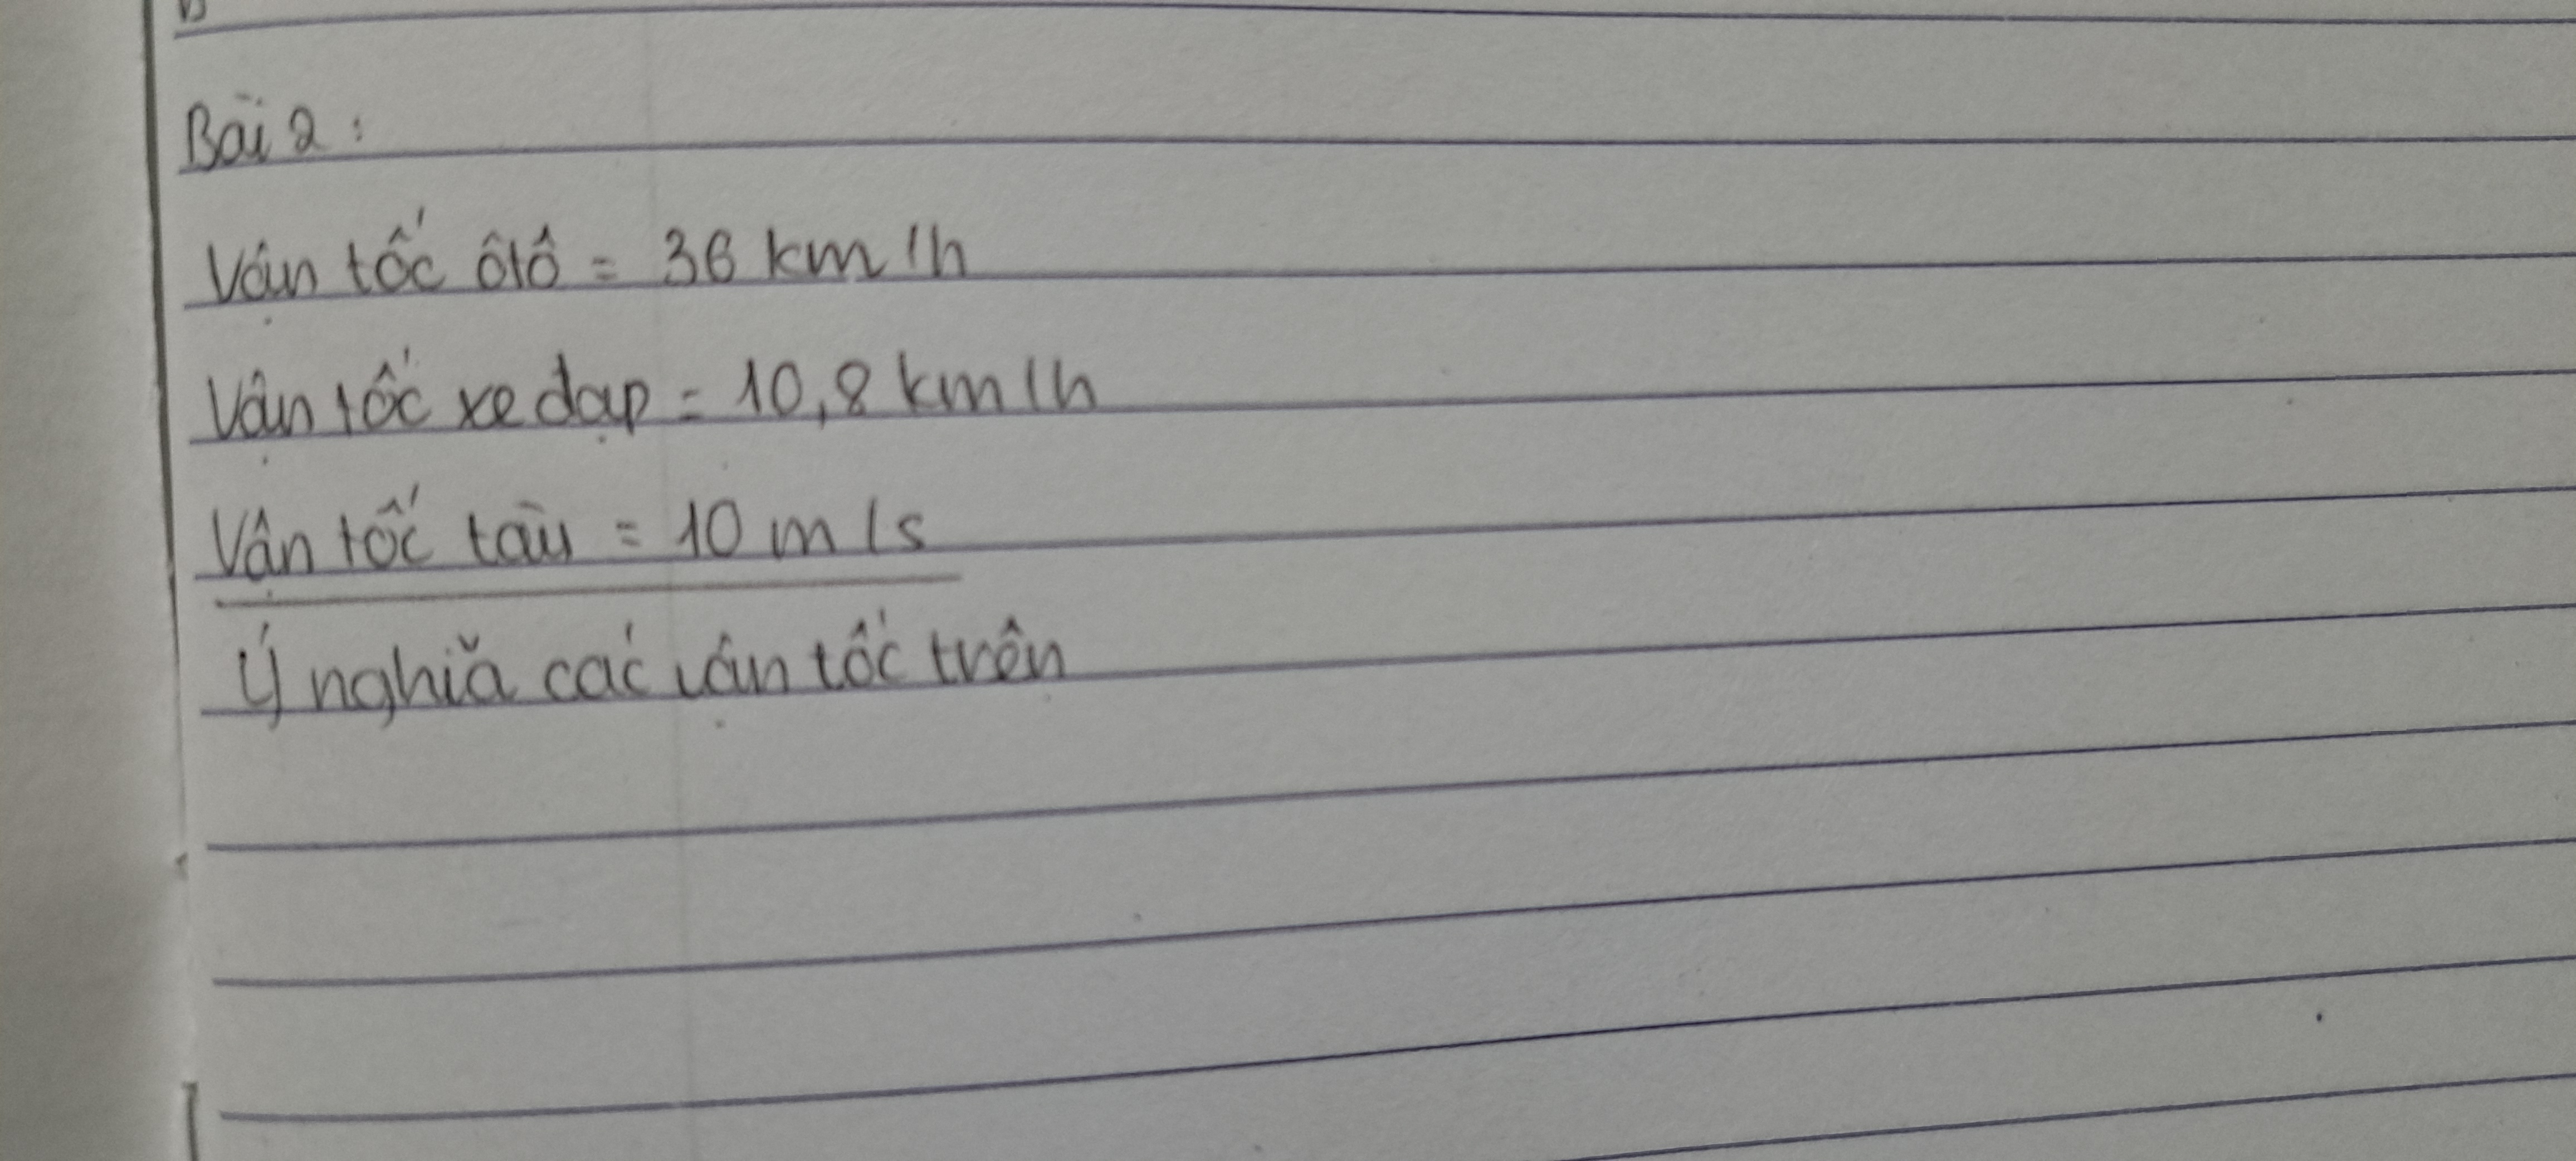 Bài 2:
Vận tốc ôtô = 36 km/h
Vận tốc xe đạp = 10,8 km/h
Vận tốc tàu = 10 m/s
Ý nghĩa các vận tốc trên